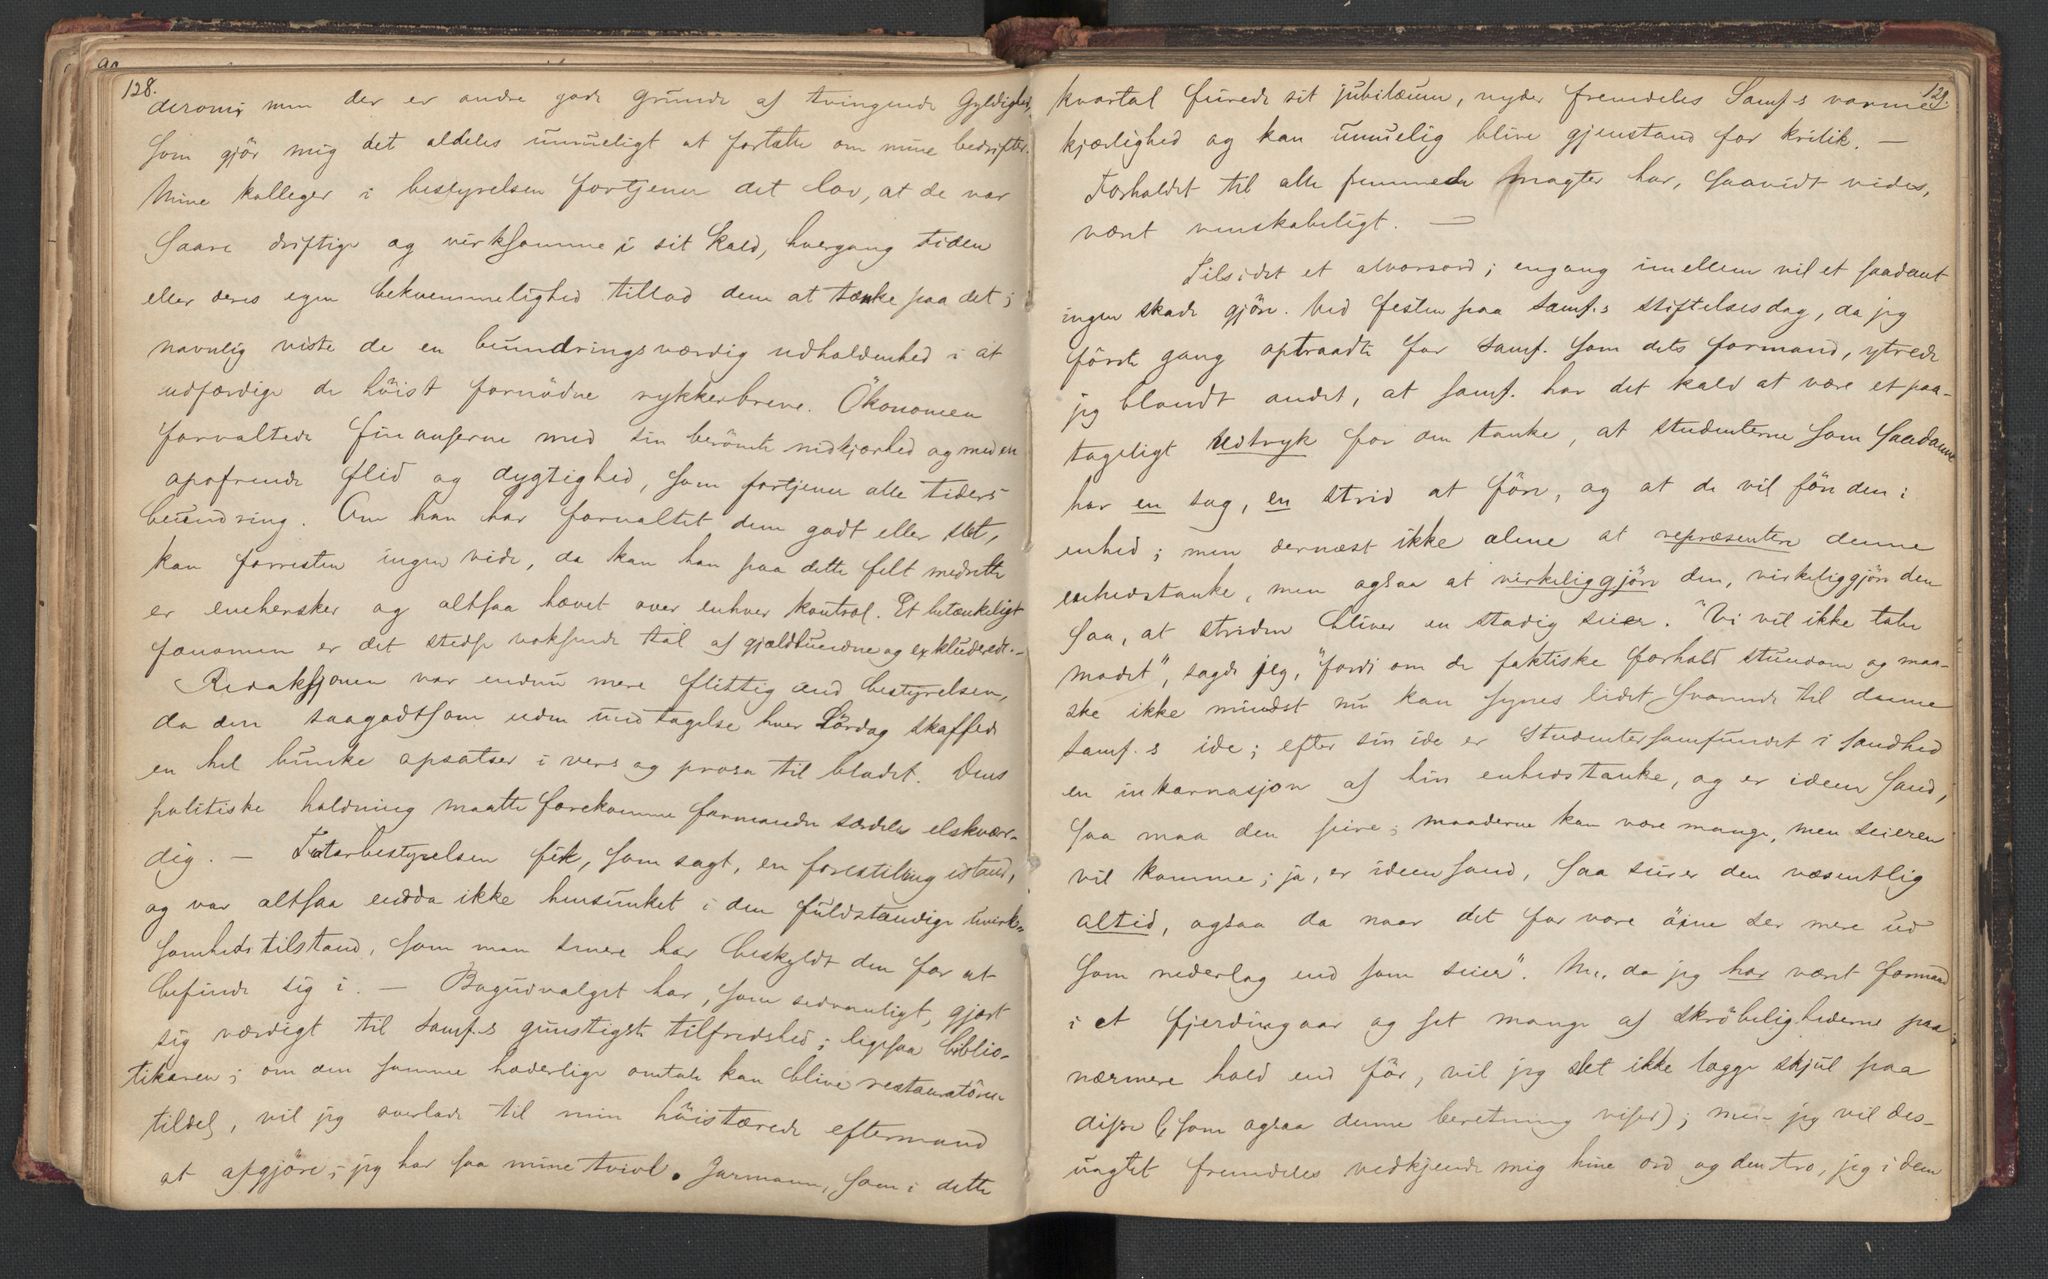 128.
derom; men der er andre gode grunde af tvingende Gyldighed,
som gjör mig det aldeles umueligt at fortælle om mine bedrifter.
Mine kolleger i bestyrelsen fortjener det lov, at de var
saare driftige og virksomme i sit kald, hvergang tiden
eller deres egen bekvemmelighed tillod dem at tænke paa det;
navnlig viste de en beundringsværdig udholdenhed i at
udfærdige de höist fornödne rykkerbreve. Ökonomen
forvaltede finanserne med sin berömte nidkjærhed og med en
opofrende flid og dygtighed, som fortjener alle tiders
beundring. Om han har forvaltet dem godt eller slet,
kan forresten ingen vide, da kan han paa dette felt medrette
er enehersker og altsaa hævet over enhver kontrol. Et betænkeligt
fænomen er det stedse voksende tal af gjældbundne og exkluderede. –
Redaksjonen var endnu mere flittig end bestyrelsen,
da den saagodtsom uden undtagelse hver Lördag skaffede
en hel bunke opsatser i vers og prosa til bladet. Dens
politiske holdning maatte forekomme formanden særdeles elskvær-
dig. – Teaterbestyrelsen fik, som sagt, en forestilling istand,
og var altsaa endda ikke hensunket i den fuldstændige uvirk-
somhedstilstand, som man senere har beskyldt den for at
befinde sig i. – Bogudvalget har, som sedvanligt, gjort
sig værdigt til Samf.s gunstigste tilfredshed; ligesaa biblio-
tikaren; om den samme hæderlige omtale kan blive restauratören
tildel, vil jeg overlade til min höistærede eftermand
at afgjöre; jeg har saa mine tvivl. Jarmann, som i dette
129.
kvartal feirede sit jubilæum, nyder fremdeles Samf.s varme
kjærlighed og kan umuelig blive gjenstand for kritik. –
Forholdet til alle fremmede magter har, saavidt vides,
været venskabeligt. –
Tilsidst et alvorsord; engang imellem vil et saadant
ingen skade gjöre. Ved festen paa Samf.s stiftelsesdag, da jeg
förste gang optraadte for Samf. som dets formand, ytrede
jeg blandt andet, at Samf. har det kald at være et paa-
tageligt udtryk for den tanke, at studenterne som saadanne
har en sag, en strid at före, og at de vil före den i
enhed; men dernæst ikke alene at repræsentere denne
enhedstanke, men ogsaa at virkeliggjöre den, virkeliggjöre den
saa, at striden bliver en stadig seier. "Vi vil ikke tabe
modet", sagde jeg, "fordi om de faktiske forhold stundom og maa-
ske ikke mindst nu kan synes lidet svarende til denne
Samf.s ide; efter sin ide er Studentersamfundet i sandhed
en inkarnasjon af hin enhedstanke, og er ideen sand,
saa maa den seire; maaderne kan være mange, men seieren
vil komme; ja, er ideen sand, saa seirer den væsentlig
altid, ogsaa da naar det for vore öine ser mere ud
som nederlag end som seier". Nu, da jeg har været formand
i et fjerdingaar og set mange af skröbelighederne paa
nærmere hold end för, vil jeg slet ikke lægge skjul paa
disse (som ogsaa denne beretning viser); men jeg vil des-
uagtet fremdeles vedkjende mig hine ord og den tro, jeg i dem